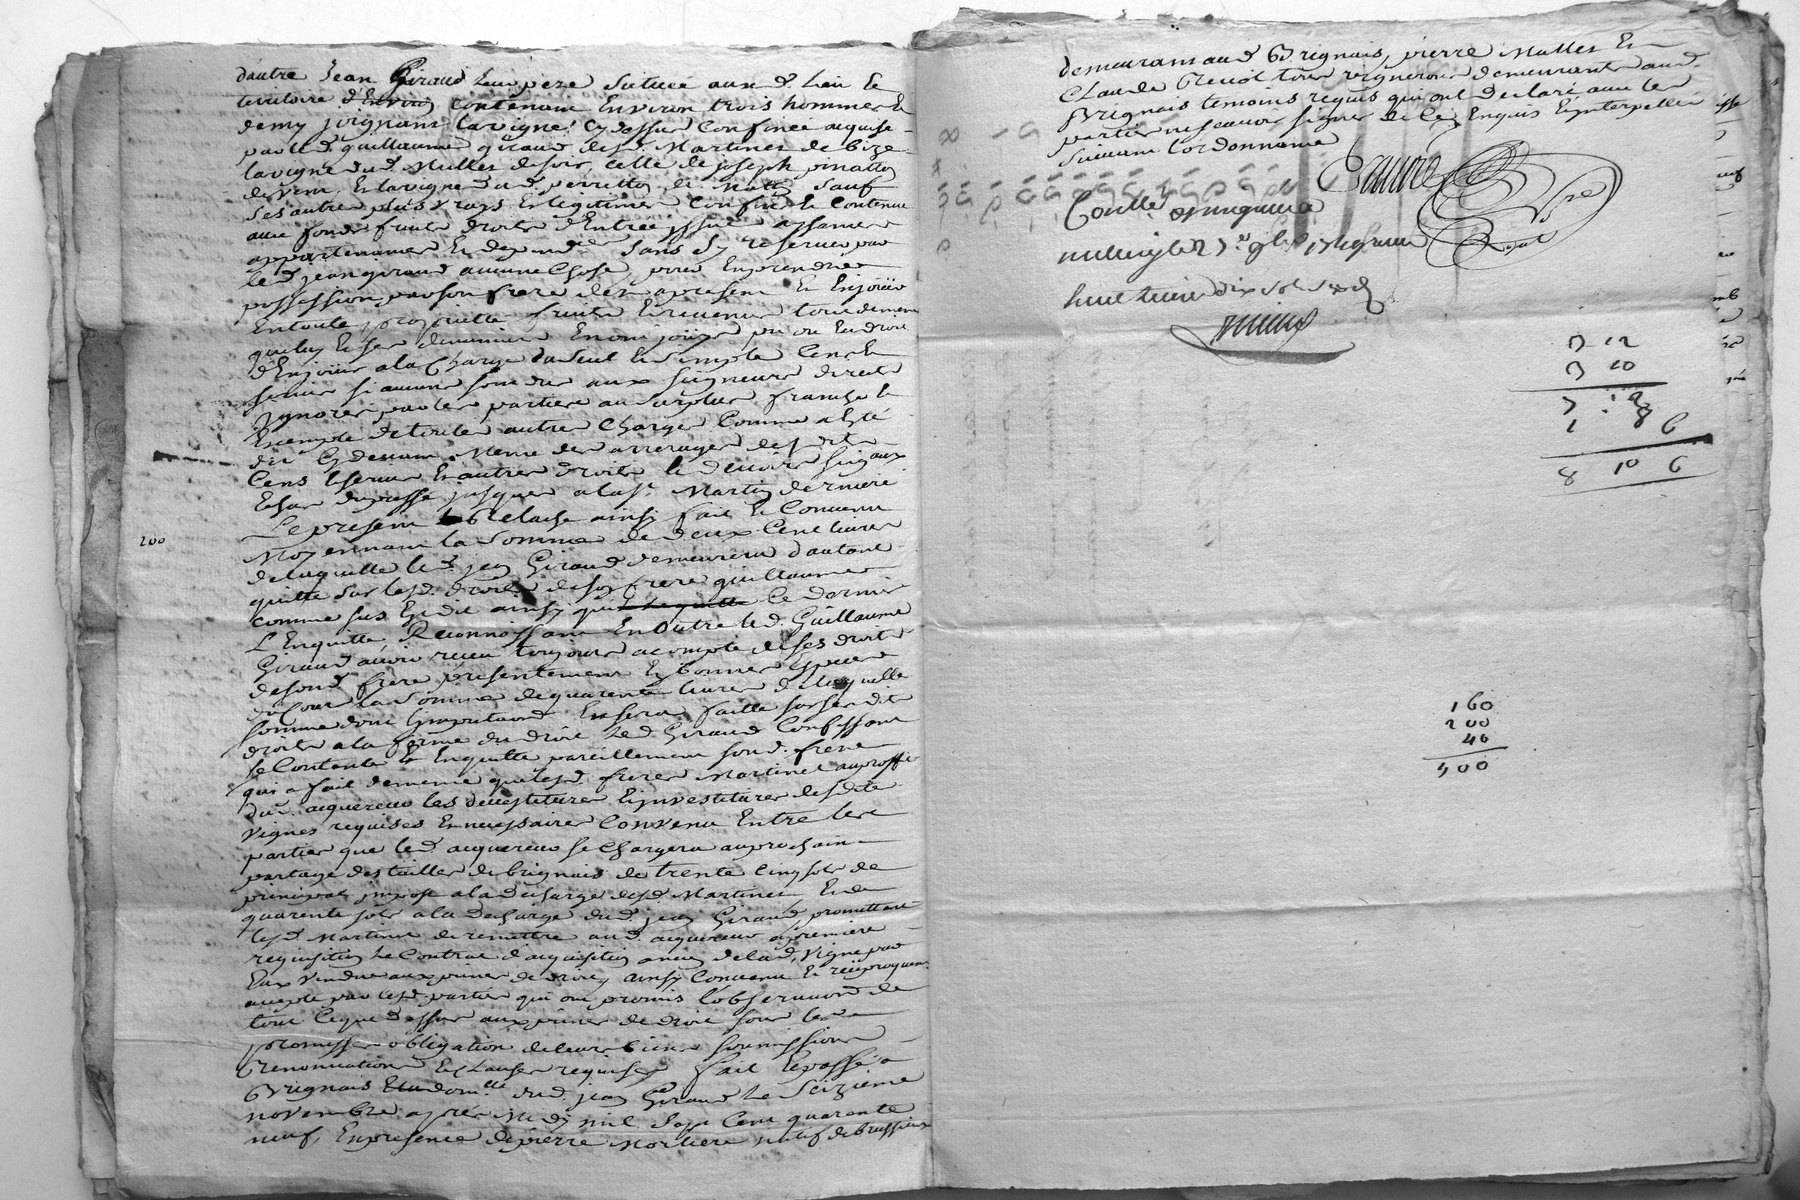 d'autre Jean Giraud leur pere située aud. lieu et
territoire d'Enviroy contenant Environ trois hommes Et
demy joignant la vigne cy dessus Confinée acquise
par led. guillaume giraud desd. Martinet de bize
la vigne dud. Mullet de soir, celle de joseph pinatton
de vent, Et la vigne dud. perretton de Matin sauf
ses autres plus vrays Et legitimes confins Et contenue
aux fonds fruits droits d'Entrée issues aysances
appartenances Et dependces sans s'y reserver par
led. jean giraud aucune chose, pour En prendre
possession par son frere des a present Et En jouir
En toute proprieté fruits Et revenus tout de meme
que luy Et ses devanciers En ont joüi pu ou Eu droit
d'En joüir a la Charge du seul Et simple Cens Et
servis si aucuns sont dus aux seigneurs directs
ignorés par les parties au surplus franche Et
Exempte de toutes autres charges Comme a Eté
dit cy devant meme des arrerages desdits
Cens Et servis Et autres droits Et devoirs seigaux
Et du passé jusques a la St Martin derniere
Le present Relache ainsy fait Et Convenu
Moyennant la somme de deux Cent livres
de laquelle led. jean Giraud demeurera d'autant
quitte sur lesd. droits de son frere guillaume
comme sus Est dit ainsy que Ce dernier
L'Enquitte Reconnoissant En Outre led. Guillaume
Giraud avoir receu toujours a compte de ses droits
de sond. frere presentement En bonnes Especes
du Cour la somme de quarente livres de laquelle
somme donc l'imputaon En sera faitte sur sesdits
droits a la forme du droit led. Giraud Confessant
se Contente Et Enquitte pareillement sond. frere
qui a fait de meme que lesd. freres Martinet au proffit
dud. acquereur les devestitures Et investitures desdites
vignes requises Et necessaires Convenu Entre les
parties que led. acquereur se chargera au prochain
partage des tailles de brignais de trente Cinq sols de
principal imposé a la decharge desd. Martinet Et de
quarente sols a la decharge dud. jean Giraud, promettant
lesd. Martinet de remettre aud. acquereur a premiere
requisition le Contrat d'acquisition ancien de lad. vigne par
Eux vendue aux peines de droit, ainsy Convenu Et reciproquent
accepté par lesd. parties qui ont promis l'observaon de
tout Ce que dessus aux peines de droit sous les
promisses obligation de leurs biens soumissions
Renonciations Et clauses requises fait Et passé a
Brignais Et au domlle dud. jean Giraud le seizieme
novembre apres Midy mil sept Cent quarente
neuf, En presence de pierre Mortiere natif de brussieux
200
demeurant aud. Brignais, pierre Mullet Et
Claude Revol tous vignerons demeurants aud.
Brignais temoins requis qui ont declaré avec les
parties ne scavoir signer de ce Enquis Et interpellés
suivant l'ordonnance
nre
Royal
huit livres dix sols six d
3 12
3 10
8 6
8 10 6
160
200
40
400